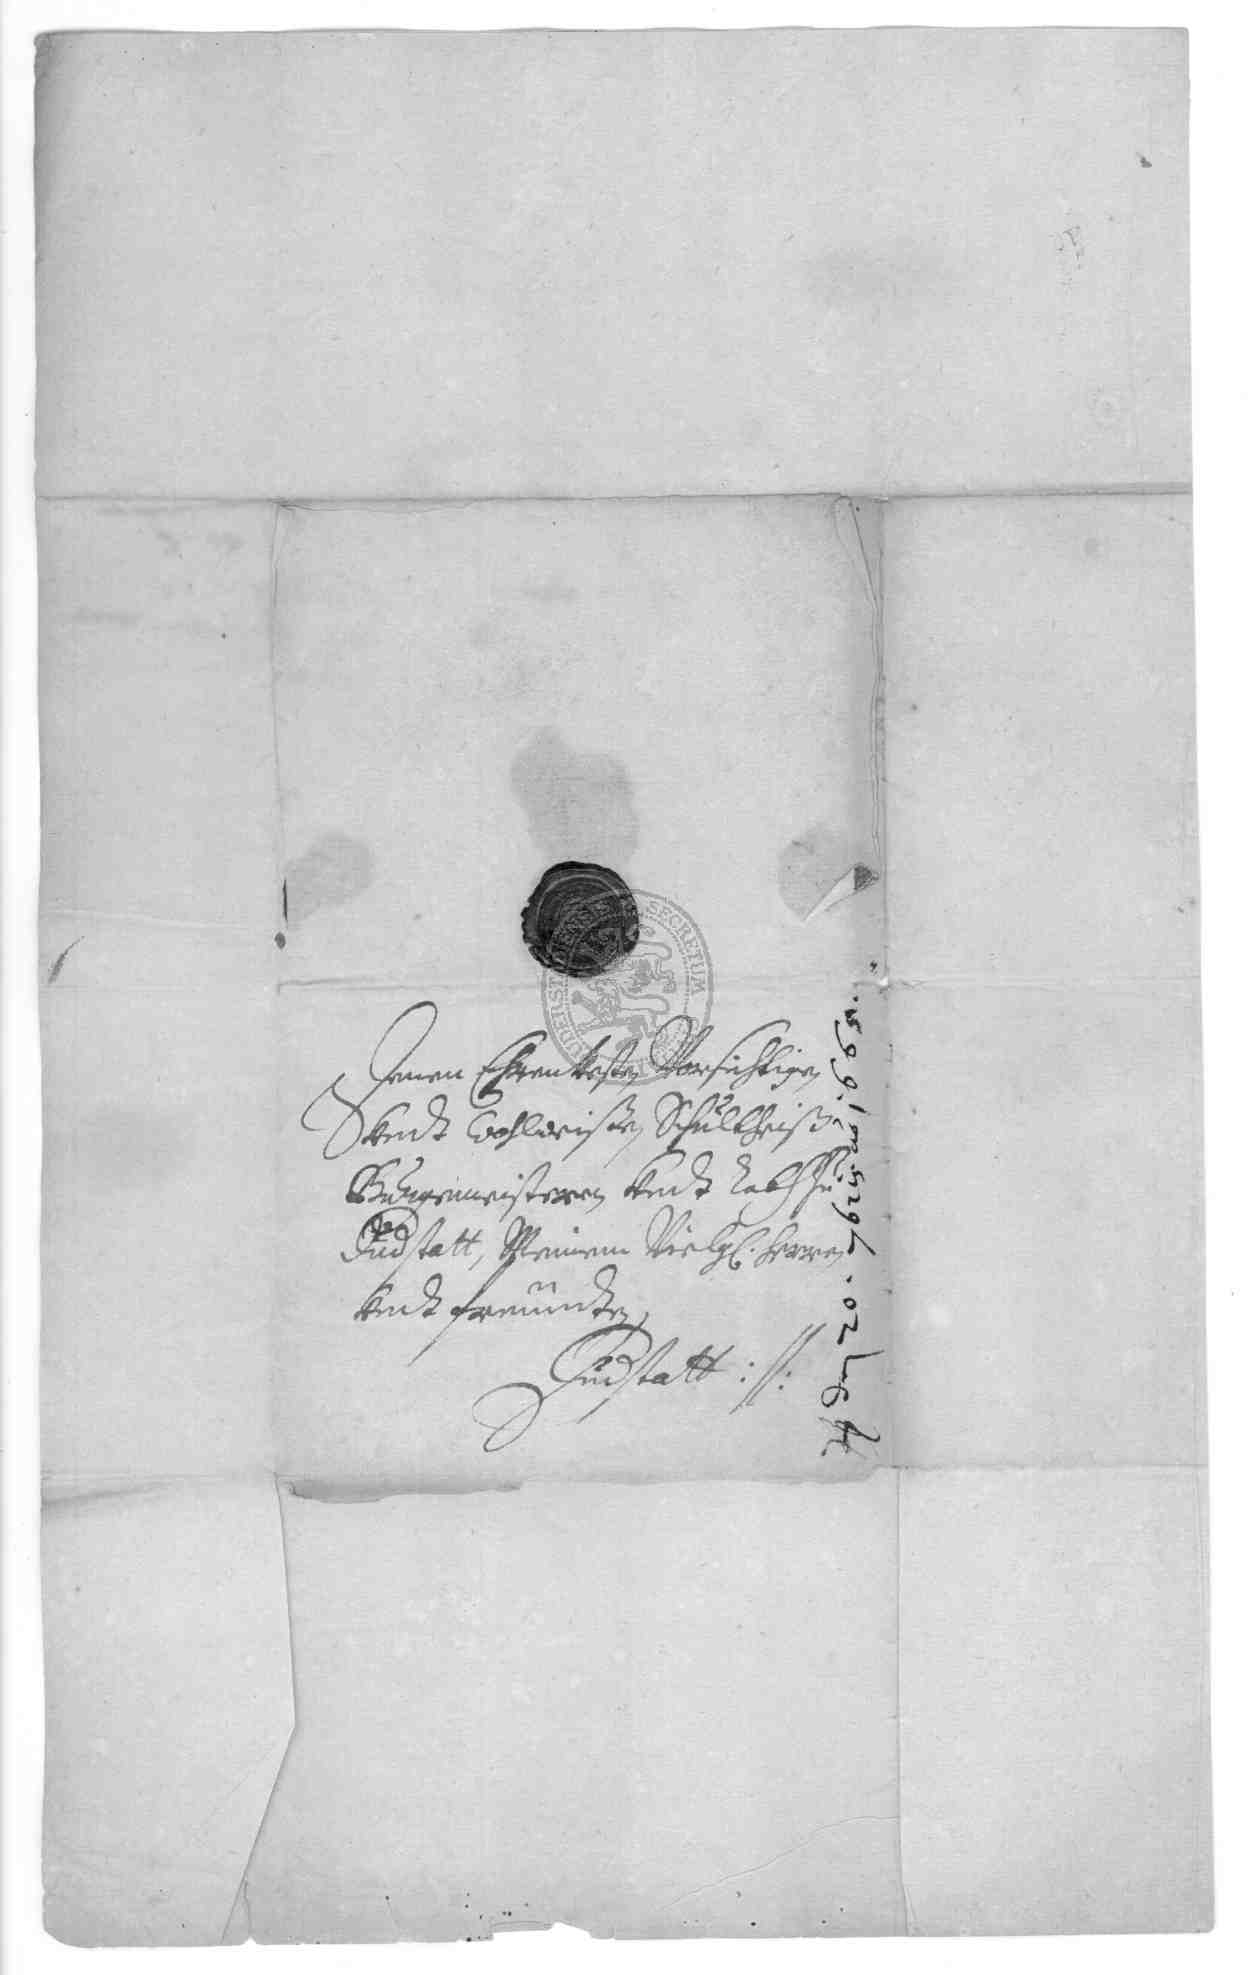 Denen Ehrenvesten Vorsichtigen
undt Wohlweisen Schultheiß
Bürgemeisteren undt Rath zu
Dudstatt, Meinem Vielgl. herren
undt freunden,
Dudstatt ://:
den 20. 1665.
SECRETUM